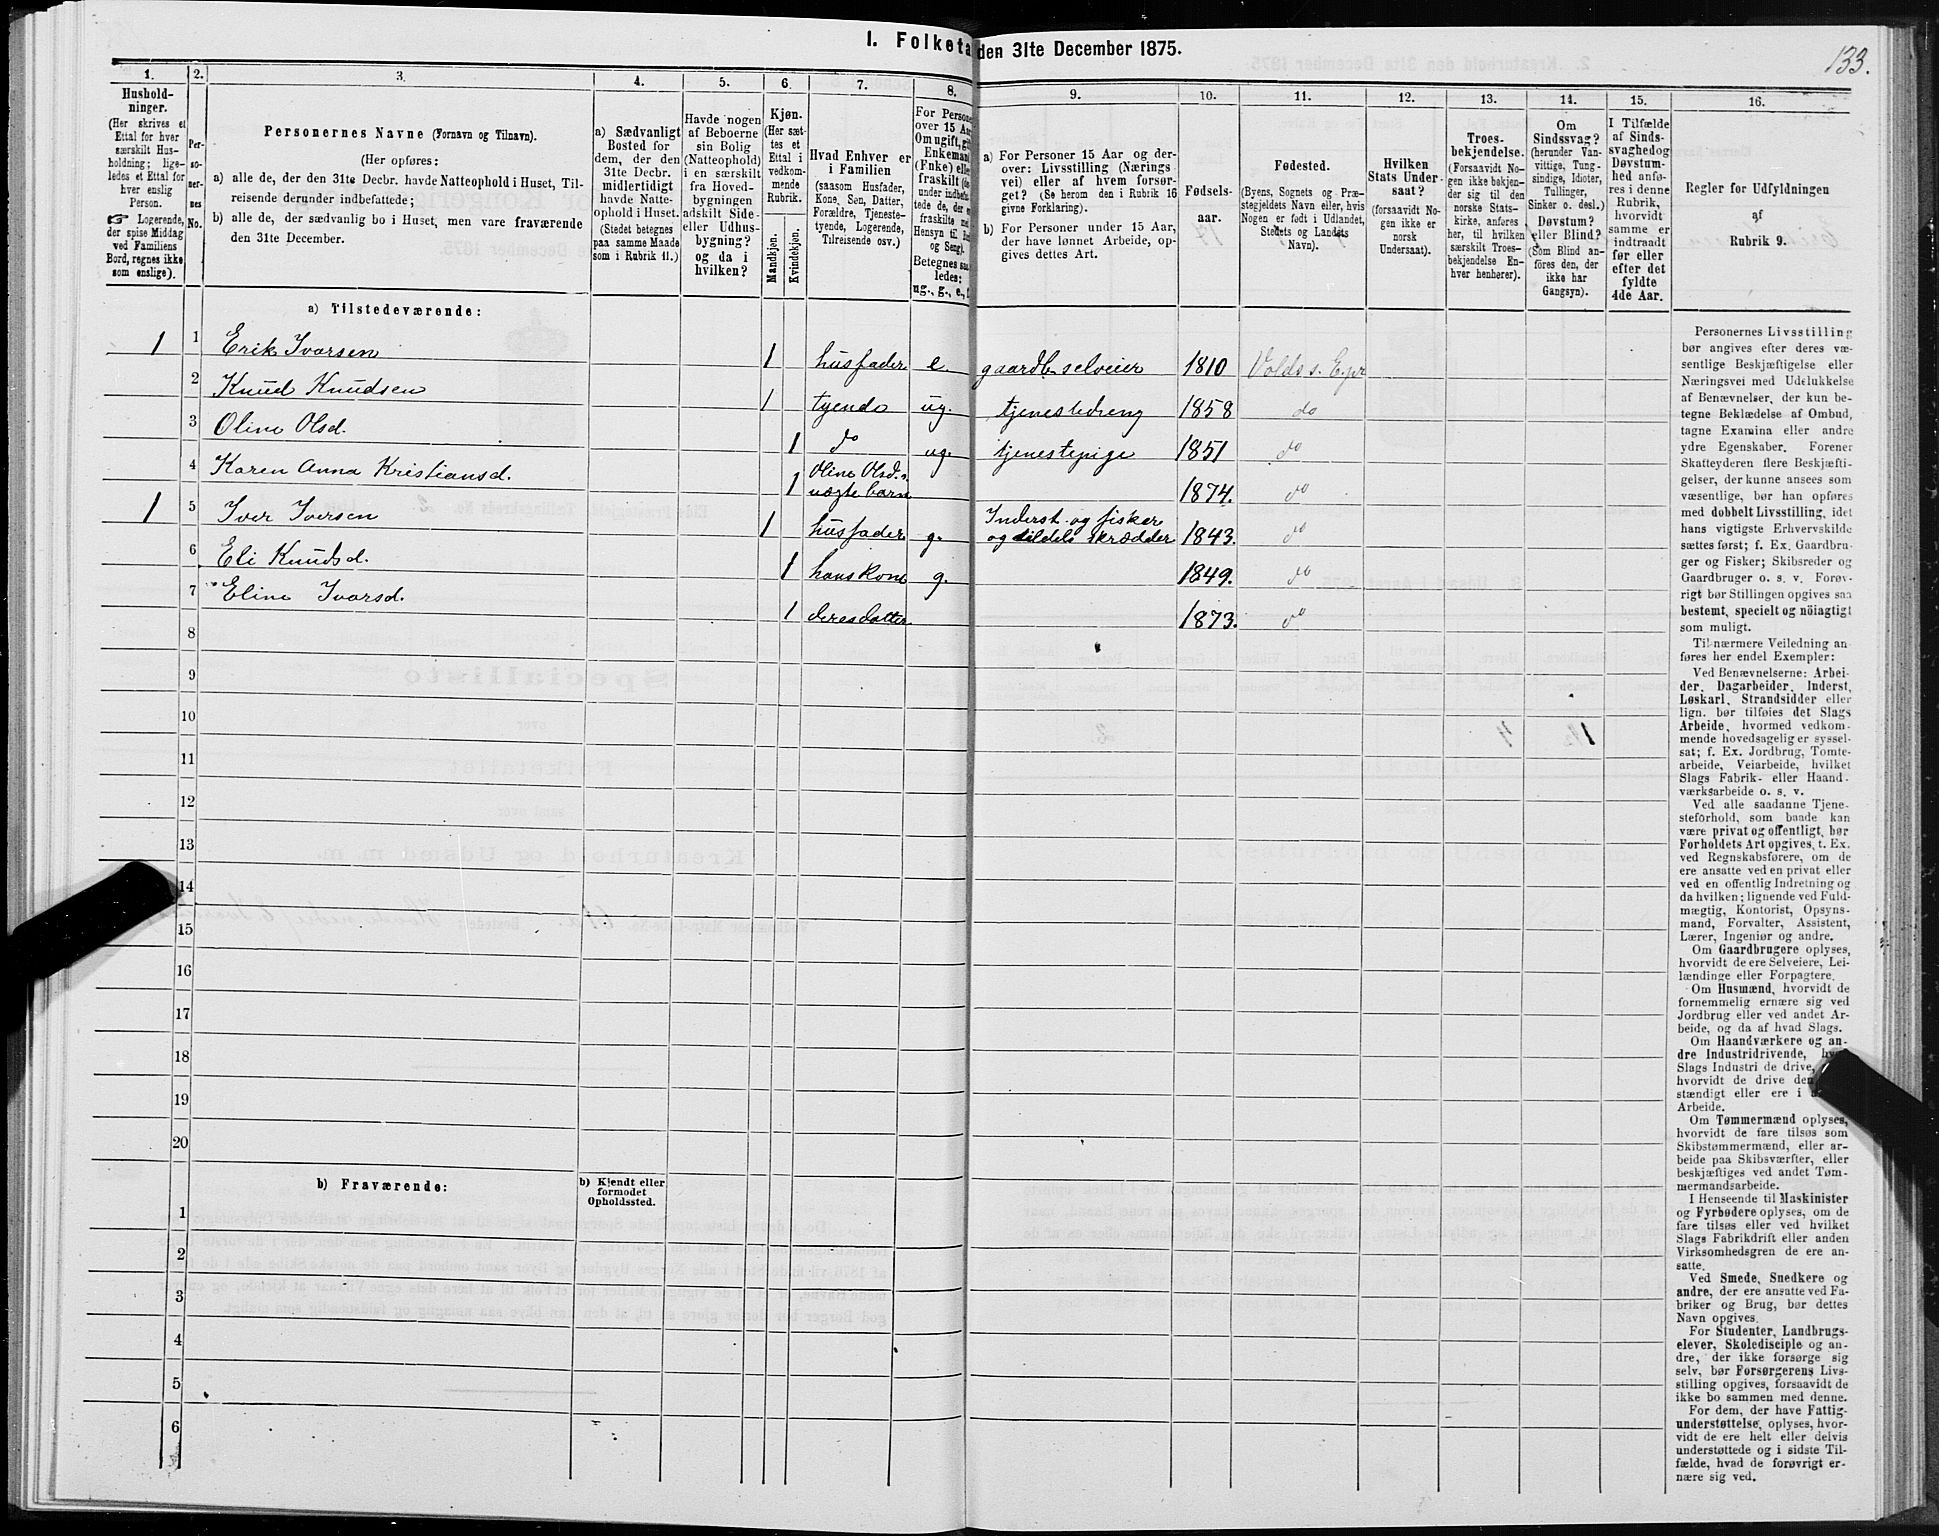 I. Folketa den 31te December 1875.
133.
1.
Hushold-
ninger.
(Her skrives et
Ettal for hver
særskilt Hus-
holdning; lige-
ledes et Ettal for
hver enslig
Person.
☞ Logerende,
der spise Middag
ved Familiens
Bord, regnes ikke
som enslige).
2.
Per-
so-
ner-
nes
No.
3.
Personernes Navne (Fornavn og Tilnavn).
(Her opføres:
a) alle de, der den 31te Decbr. havde Natteophold i Huset, Til-
reisende derunder indbefattede;
b) alle de, der sædvanlig bo i Huset, men vare fraværende
den 31te December.
4.
a) Sædvanligt
Bosted for
dem, der den
31te Decbr.
midlertidigt
havde Natte-
ophold i Huset.
(Stedet betegnes
paa samme Maade
som i Rubrik 11.)
5.
Havde nogen
af Beboerne
sin Bolig
(Natteophold)
i en særskilt
fra Hoved-
bygningen
adskilt Side-
eller Udhus-
bygning?
og da i
hvilken?
6.
Kjøn.
(Her sæt-
tes et
Ettal i
vedkom-
mende
Rubrik.
Mandkjøn.
Kvindekjøn.
7.
Hvad Enhver er
i Familien
(saasom Husfader,
Kone, Søn, Datter,
Forældre, Tjeneste-
tyende, Logerende,
Tilreisende osv.)
8.
For Persone
over 15 Aa
Om ugift, gif
Enkeman
(Enke) elle
fraskilt (
under indbef
tede de, der e
fraskilte me
Hensyn til
og Seng).
Betegnes saa
ledes:
ug., g., e., f
9.
a) For Personer 15 Aar og der-
over: Livsstilling (Nærings-
vei) eller af hvem forsør-
get? (Se herom den i Rubrik 16
givne Forklaring).
b) For Personer under 15 Aar,
der have lønnet Arbeide, op-
gives dettes Art.
10.
Fødsels-
aar.
11.
Fødested.
(Byens, Sognets og Præ-
stegjeldets Navn eller, hvis
Nogen er født i Udlandet,
Stedets og Landets
Navn).
12.
Hvilken
Stats Under-
saat?
(forsaavidt No-
gen ikke er
norsk
Undersaat).
13.
Troes-
bekjendelse.
(Forsaavidt No-
gen ikke bekjen-
der sig til den
norske Stats-
kirke, anføres
her, til hvilken
særskilt Troes-
bekjendelse En-
hver henhører).
14.
Om
Sindssvag?
(herunder Van-
vittige, Tung-
sindige, Idioter,
Tullinger,
Sinker o. desl.)
Døvstum?
eller Blind?
(Som Blind an-
føres den, der
ikke har
Gangsyn).
15.
I Tilfælde
af Sinds-
svaghed og
Døvstum-
hed anfø-
res i denne
Rubrik,
hvorvidt
samme er
indtraadt
før eller
efter det
fyldte
4de Aar.
16.
Regler for Udfyldningen
af
Rubrik 9.
a) Tilstedeværende:
1 1 Erik Ivarsen 1 husfader e. gaardb. selveier 1810 Volds s. E.pr
2 Knud Knudsen 1 tyende ug. tjenestedreng 1858 do
3 Oline Olsd. 1 do ug. tjenestepige 1851 do
4 Karen Anna Kristiansd. 1 Oline Olsd. uægte barn 1874. do
1 5 Iver Iversen 1 husfader g. Inderst og fisker og tildels skrædder 1843. do
6 Eli Knudsd. 1 hans kone g. 1849. do
7 Eline Ivarsd. 1 deres datter 1873. do
8
9
10
11
12
13
14
15
16
17
18
19
20
b) Fraværende:
b) Kjendt eller
formodet
Opholdssted.
1
2
3
4
5
6
Personernes Livsstilling
bør angives efter deres væ-
sentlige Beskjæftigelse eller
Næringsvei med Udelukkelse
af Benævnelser, der kun be-
tegne Beklædelse af Ombud,
tagne Examina eller andre
ydre Egenskaber. Forener
Skatteyderen flere Beskjæfti-
gelser, der kunne ansees som
væsentlige, bør han opføres
med dobbelt Livsstilling, idet
hans vigtigste Erhvervskilde
sættes først; f. Ex. Gaardbru-
ger og Fisker; Skibsreder og
Gaardbruger o. s. v. Forøv-
rigt bør Stillingen opgives saa
bestemt, specielt og nöiagtigt
som muligt.
Til nærmere Veiledning an-
føres her endel Exempler:
Ved Benævnelserne: Arbei-
der, Dagarbeider, Inderst,
Løskarl, Strandsidder eller
lign. bør tilføies det Slags
Arbeide, hvormed vedkom-
mende hovedsagelig er syssel-
sat; f. Ex. Jordbrug, Tomte-
arbeide, Veiarbeide, hvilket
Slags Fabrik- eller Haand-
værksarbeide o. s. v.
Ved alle saadanne Tjene-
steförhold, som baade kan
være privat og offentligt, bør
Forholdets Art opgives, t. Ex.
ved Regnskabsførere, om de
ere ansatte ved en privat eller
ved en offentlig Indretning og
da hvilken; lignende ved Fuld-
mægtig, Kontorist, Opsyns-
mand, Forvalter, Assistent,
Lærer, Ingeniør og andre.
Om Gaardbrugere oplyses,
hvorvidt de ere Selveiere, Lei-
lændinge eller Forpagtere.
Om Husmænd, hvorvidt de
fornemmelig ernære sig ved
Jordbrug eller ved andet Ar-
beide, og da af hvad Slags.
Om Haandværkere og an-
dre Industridrivende,
Slags Industri de drive,
hvorvidt de drive den
stændigt eller ere i
Arbeide.
Om Tømmermænd oplyses,
hvorvidt de fare tilsøs som
Skibstømmermænd, eller ar-
beide paa Skibsværfter, eller
beskjæftiges ved andet Tøm-
mermandsarbeide.
I Henseende til Maskinister
og Fyrbødere oplyses, om de
fare tilsøs eller ved hvilket
Slags Fabrikdrift eller anden
Virksomhedsgren de ere an-
satte.
Ved Smede, Snedkere og
andre, der ere ansatte ved Fa-
briker og Brug, bør dettes
Navn opgives.
For Studenter, Landbrugs-
elever, Skoledisciple og an-
dre, der ikke forsørge sig
selv, bør Forsørgerens Livs-
stilling opgives, forsaavidt de
ikke bo sammen med denne.
For dem, der have Fattig-
understøttelse, oplyses, hvor-
vidt de ere helt eller delvis
understøttede og i sidste Til-
fælde, hvad de forøvrigt er-
nære sig ved.